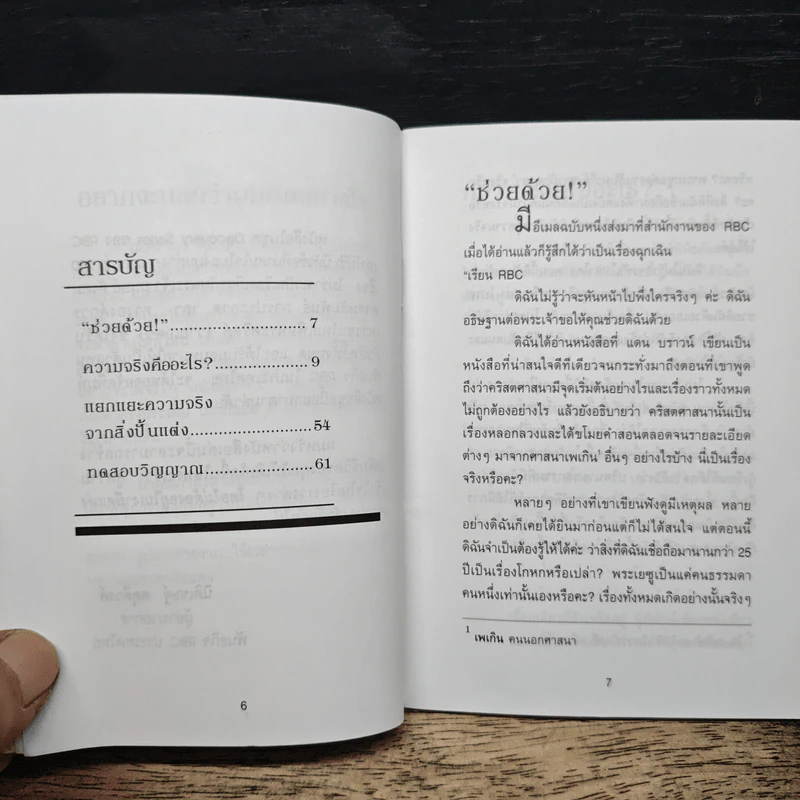 สารบัญ
"ช่วยด้วย!"............................. 7
ความจริงคืออะไร?.................... 9
แยกแยะความจริง
จากสิ่งปั้นแต่ง.......................... 54
ทดสอบวิญญาณ........................ 61
6
"ช่วยด้วย!"
มีอีเมลฉบับหนึ่งส่งมาที่สำนักงานของ RBC
เมื่อได้อ่านแล้วก็รู้สึกได้ว่าเป็นเรื่องฉุกเฉิน
"เรียน RBC
ดิฉันไม่รู้ว่าจะหันหน้าไปพึ่งใครจริงๆ ค่ะ ดิฉัน
อธิษฐานต่อพระเจ้าขอให้คุณช่วยดิฉันด้วย
ดิฉันได้อ่านหนังสือที่ แดน บราวน์ เขียนเป็น
หนังสือที่น่าสนใจดีทีเดียวจนกระทั่งมาถึงตอนที่เขาพูด
ถึงว่าคริสตศาสนามีจุดเริ่มต้นอย่างไรและเรื่องราวทั้งหมด
ไม่ถูกต้องอย่างไร แล้วยังอธิบายว่า คริสตศาสนานั้นเป็น
เรื่องหลอกลวงและได้ขโมยคำสอนตลอดจนรายละเอียด
ต่างๆ มาจากศาสนาเพเกิน1 อื่นๆ อย่างไรบ้าง นี่เป็นเรื่อง
จริงหรือคะ?
หลายๆ อย่างที่เขาเขียนฟังดูมีเหตุผล หลาย
อย่างดิฉันก็เคยได้ยินมาก่อนแต่ก็ไม่ได้สนใจ แต่ตอนนี้
ดิฉันจำเป็นต้องรู้ให้ได้ค่ะ ว่าสิ่งที่ดิฉันเชื่อถือมานานกว่า 25
ปีเป็นเรื่องโกหกหรือเปล่า? พระเยซูเป็นแค่คนธรรมดา
คนหนึ่งเท่านั้นเองหรือคะ? เรื่องทั้งหมดเกิดอย่างนั้นจริงๆ
1 เพเกิน คนนอกศาสนา
7